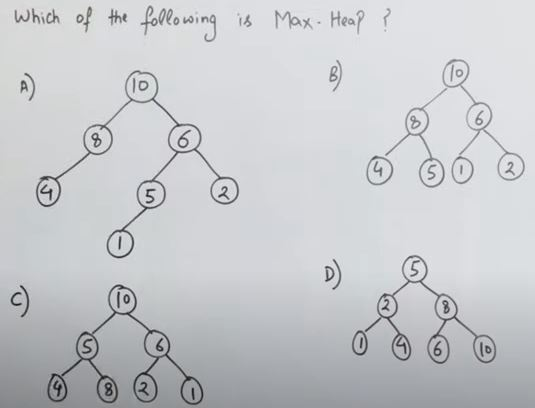 Which of the following is Max-Heap ?
A)
10
8 6
4 5 2
1
B)
10
8 6
4 5 1 2
C)
10
5 6
4 8 2 1
D)
5
2 8
1 4 6 10